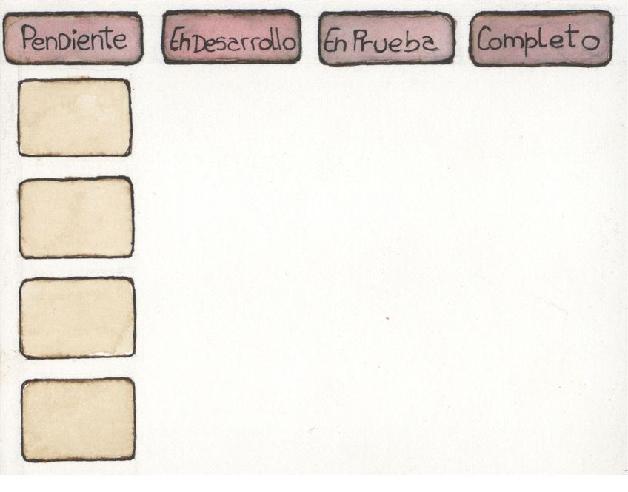 Pendiente
En Desarrollo
En Prueba
Completo